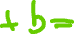 + b =